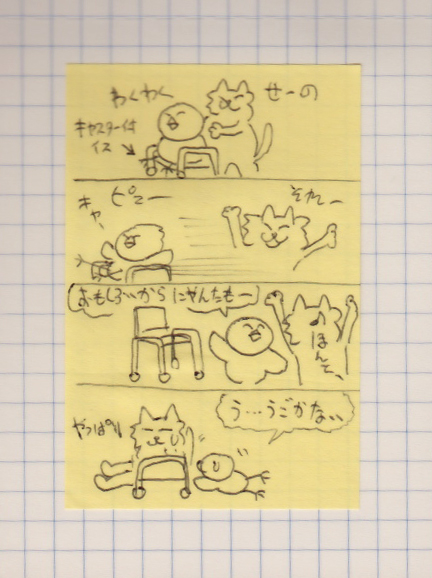 わくわく
せーの
キャスター付
イス
ピュー
キャ
それー
おもしろいからにゃんたもー
ほんと、
う…うごかない
やっぱり